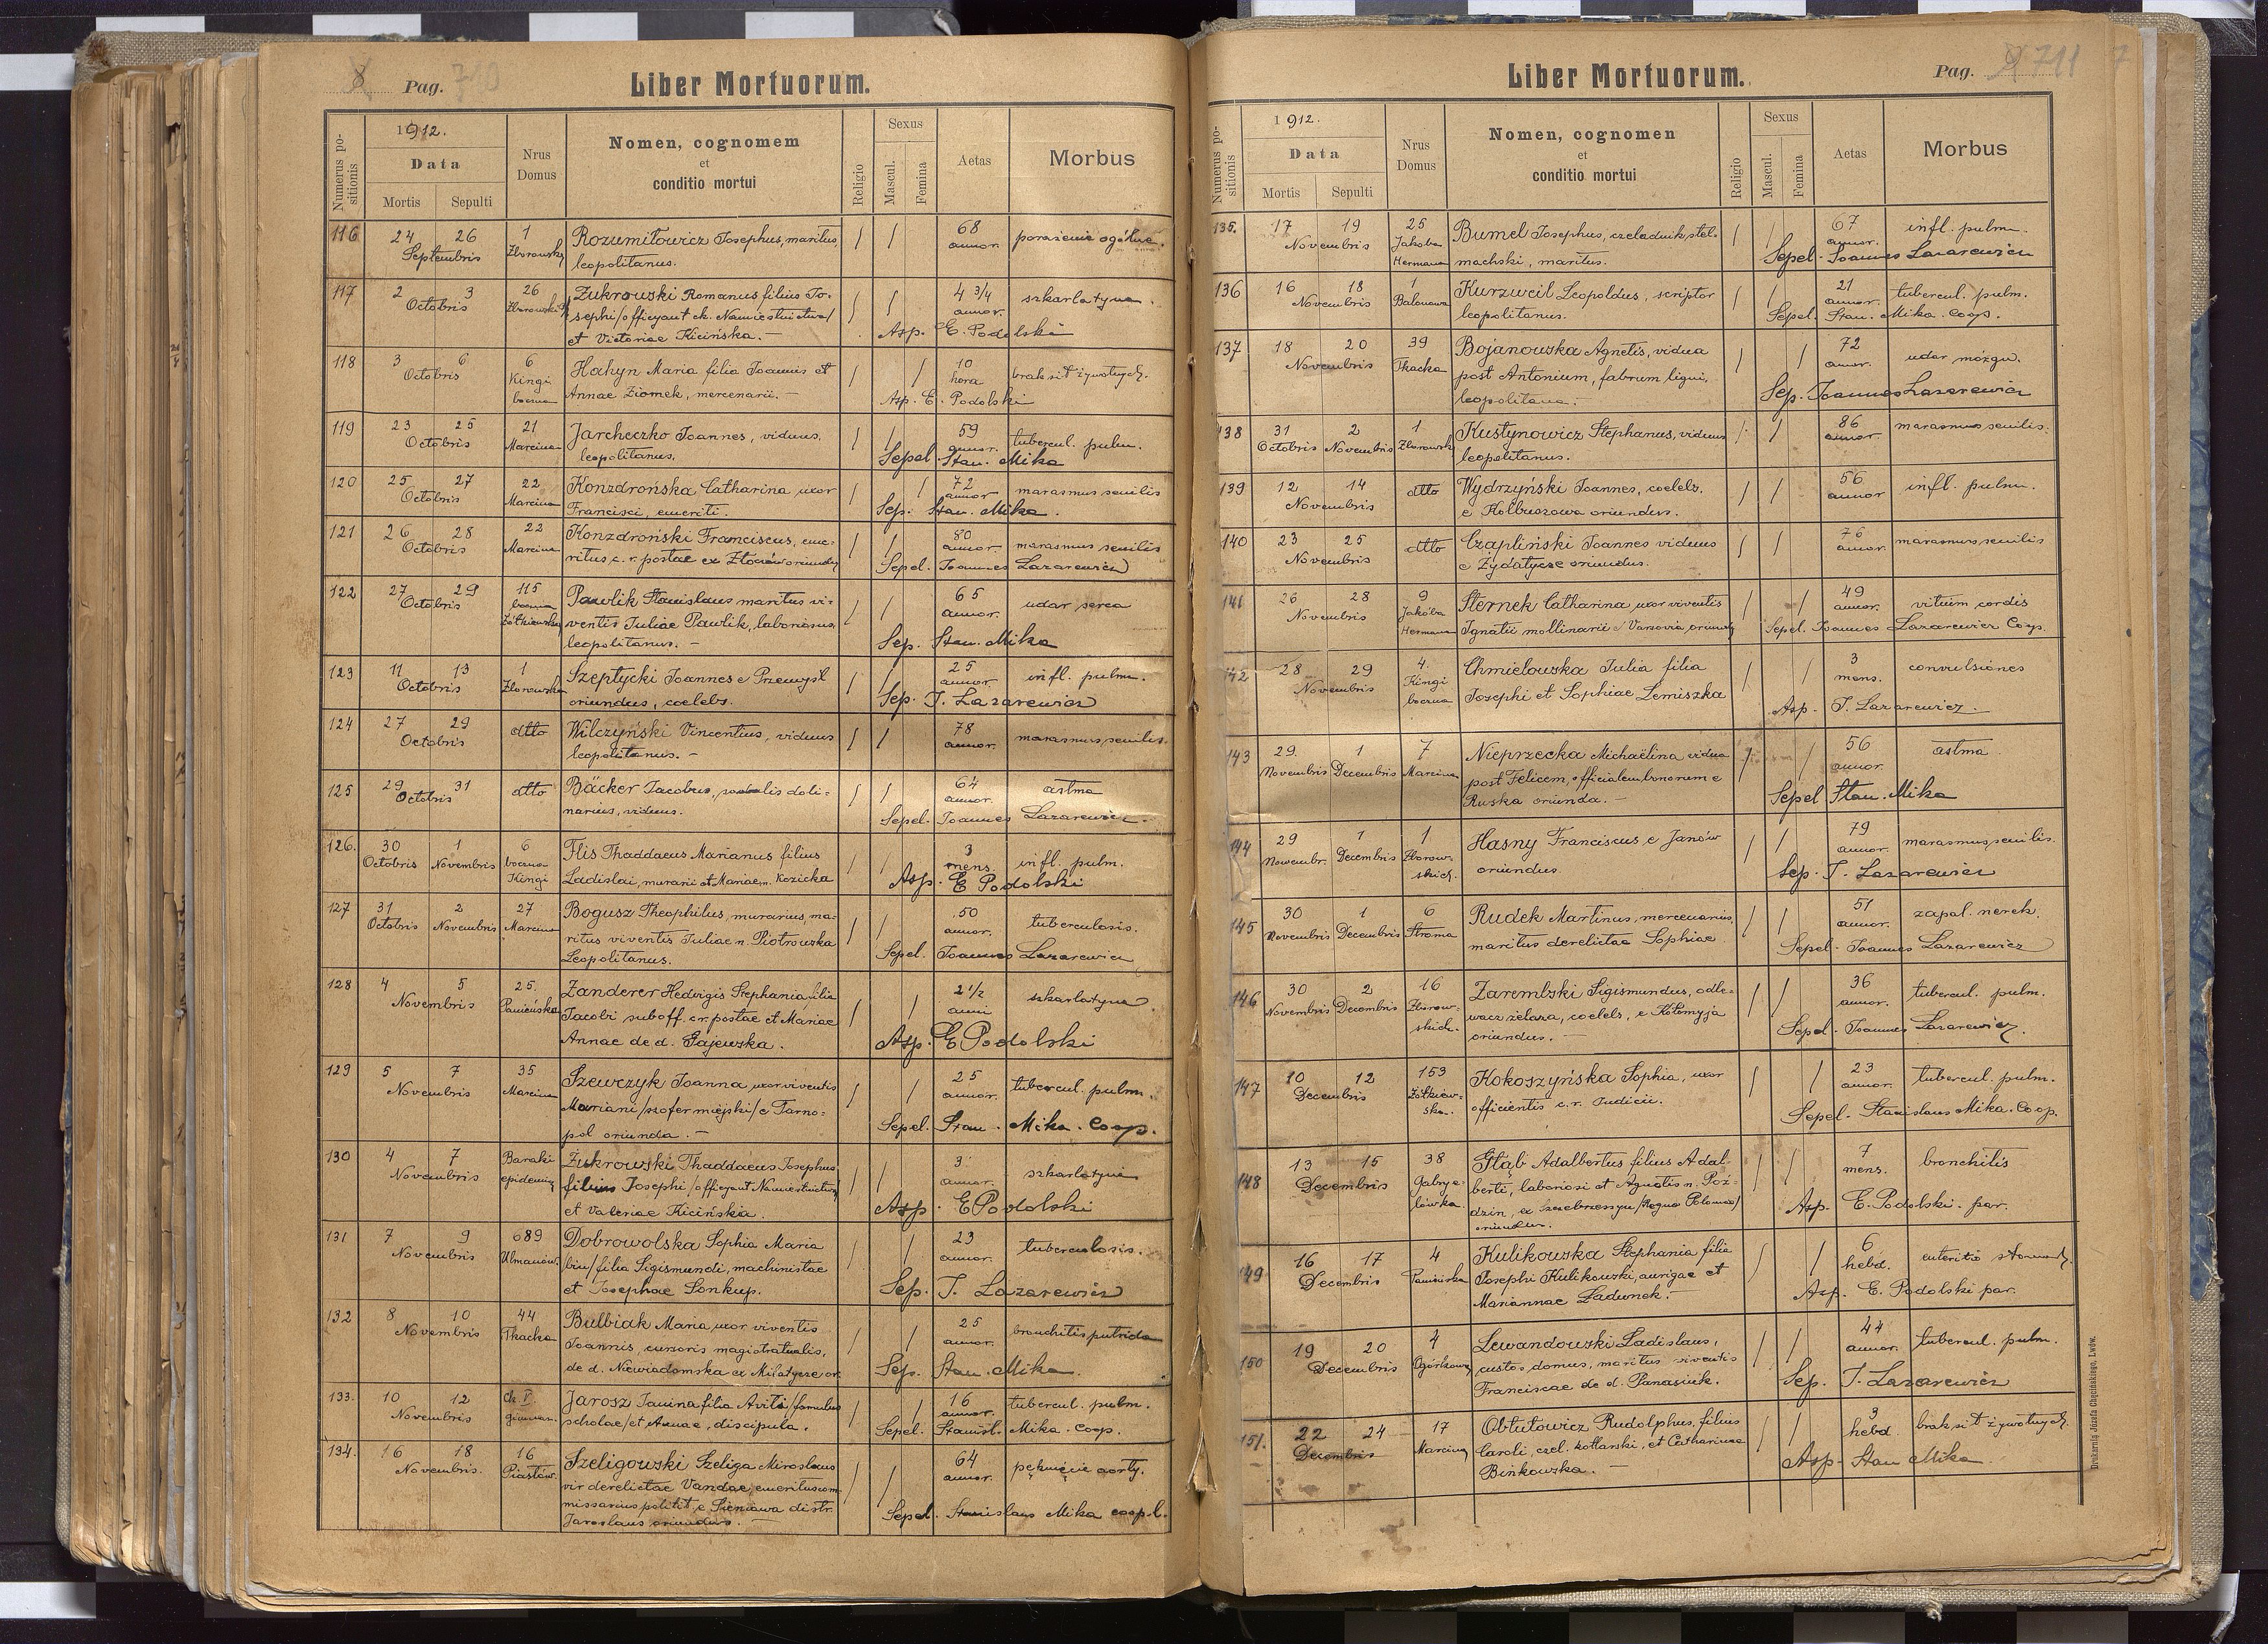 Pag. 710
Liber Mortuorum.
Numerus positionis
1912.
Data
Mortis Sepulti
Nrus Domus
Nomen, cognomem
et
conditio mortui
Religio
Sexus
Mascul. Femina
Aetas
Morbus
116 24 26 1 Rozumiłowicz Josephus, maritus, 68 porażenie ogólne.
Septembris leopolitanus. annor.
117 2 3 26 Żukrowski Romanus filius Jo- 4 3/4 szkarlatyna.
Octobris sephi/officyant ck. Namiestnictwa/ annor.
et Victoriae Kicińska. — Asp. E. Podolski
118 3 6 6 Hahyn Maria filia Joannis et 10 brak sił żywotnych.
Octobris Kingi boczna Annae Ziomek, mercenarii. — hora
Asp. E. Podolski
119 23 25 21 Jarcheczko Joannes, viduus, 59 tubercul. pulm.
Octobris Marcina leopolitanus. annor.
Sepel. Stan. Mika
120 25 27 22 Konzdrońska Catharina uxor 72 marasmus senilis
Octobris Marcina Francisci, emeriti. annor
Sep. Stan. Mika.
121 26 28 22 Konzdroński Franciscus, eme- 80 marasmus senilis
Octobris Marcina ritus c. r. postae ex Złoczów oriundus annor.
Sepel. Joannes Lazarewicz
122 27 29 115 Pawlik Stanislaus maritus vi- 65 udar serca
Octobris boczna Żółkiewska ventis Juliae Pawlik, laboriosus, annor.
leopolitanus. — Sep. Stan. Mika
123 11 13 1 Szeptycki Joannes e Przemyśl 25 infl. pulm.
Octobris oriundus, coelebs. annor.
Sep. J. Lazarewicz
124 27 29 dtto Wilczyński Vincentius, viduus 78 marasmus senilis.
Octobris leopolitanus. — annor.
125 29 31 dtto Bäcker Jacobus, doli- 64 astma
Octobris narius, viduus. annor.
Sepel. Joannes Lazarewicz.
126. 30 1 6 Flis Thaddaeus Marianus filius 3 infl. pulm.
Octobris Novembris boczna Kingi Ladislai, murarii et Mariae n. Kozicka mens.
Asp. E Podolski
127 31 2 27 Bogusz Theophilus, murarius, ma- 50 tuberculosis.
Octobris Novembris Marcina ritus viventis Juliae n. Piotrowska annor.
Leopolitanus. Sepel. Joannes Lazarewicz
128 4 5 25. Zanderer Hedvigis Stephania filia 2 1/2 szkarlatyna
Novembris Panieńska Jacobi suboff. cr. postae et Mariae anni
Annae de d. Gajewska. Asp. E Podolski
129 5 7 35 Szewczyk Joanna uxor viventis 25 tubercul. pulm.
Novembris Marcina Mariani/szofer miejski/e Tarno- annor.
pol oriunda. — Sepel. Stan. Mika. Coop.
130 4 7 Baraki Żukrowski Thaddaeus Josephus 3 szkarlatyna
Novembris filius Josephi/officyant Namiestnictwa/ annor.
et Valeriae Kicińska. Asp. E Podolski
131 7 9 689 Dobrowolska Sophia Maria 23 tuberculosis.
Novembris bin/filia Sigismundi, machinistae annor.
et Josephae Sonkup. Sep. J. Lazarewicz
132 8 10 44 Bulbiak Maria, uxor viventis 25 bronchitis putrida
Novembris Tkacka Joannis, cursoris magistratualis, annor.
de d. Niewiadomska ex Miłatycze or. Sep. Stan. Mika.
133. 10 12 Jarosz Janina filia Aviti/famulus 16 tubercul. pulm.
Novembris scholae/et Annae, discipula. annor.
Sepel. Stanisł. Mika. Coop.
134. 16 18 16 Szeligowski Szeliga Miroslaus 64 pęknięcie aorty.
Novembris. Piastów. vir derelictae Vandae, emeritus com- annor.
missarius polit. e Sieniawa distr.
Jaroslaus oriundus. — Sepel. Stanislaus Mika coop.
Liber Mortuorum.
Pag. 711
Numerus positionis
1912.
Data
Mortis Sepulti
Nrus Domus
Nomen, cognomen
et
conditio mortui
Religio
Sexus
Mascul. Femina
Aetas
Morbus
135. 17 19 25 Bumel Josephus, czeladnik stel- 67 infl. pulm.
Novembris Jakoba Hermana machski, maritus. annor.
Sepel. Joannes Lazarewicz
136 16 18 1 Kurzweil Leopoldus, scriptor 21 tubercul. pulm.
Novembris Balonowa leopolitanus. annor.
Sepel. Stan. Mika. Coop.
137 18 20 39 Bojanowska Agnetis, vidua 72 udar mózgu.
Novembris Tkacka post Antonium, fabrum ligni, annor.
leopolitana. — Sep. Joannes Lazarewicz
138 31 2 1 Kustynowicz Stephanus, viduus 86 marasmus senilis.
Octobris Novembris leopolitanus. annor.
139 12 14 dtto Wydrzyński Joannes, coelebs, 56 infl. pulm.
Novembris e Kolbuszowa oriundus. annor
140 23 25 dtto Czapliński Joannes viduus 76 marasmus senilis
Novembris e Żydatycze oriundus. annor.
141 26 28 9 Sternek Catharina uxor viventis 49 vitium cordis
Novembris Jakóba Hermana Ignatii mollinarii e Varsovia oriunda annor.
Sepel. Joannes Lazarewicz Coop.
142 28 29 4. Chmielowska Julia filia 3 convulsiones
Novembris Kingi boczna Josephi et Sophiae Lemiszka mens.
Asp. J. Lazarewicz.
143 29. 1 7 Nieprzecka Michaëlina vidua 56 astma
Novembris Decembris Marcina post Felicem, officialem bonorum e annor.
Ruska oriunda. — Sepel Stan. Mika
144 29 1 1 Hasny Franciscus e Janów 79 marasmus senilis.
Novembr. Decembris Zborowskich. oriundus annor.
Sep. J. Lazarewicz
145 30 1 6 Rudek Martinus, mercenarius, 51 zapal. nerek.
Novembris Decembris Stroma maritus derelictae Sophiae annor.
Sepel. Joannes Lazarewicz
146 30 2 16 Zarembski Sigismundus, odle- 36 tubercul. pulm.
Novembris Decembris Zborowskich. wacz żelaza, coelebs, e Kołomyja annor.
oriundus. — Sepel. Joannes Lazarewicz.
147 10 12 153 Kokoszyńska Sophia, uxor 23 tubercul. pulm.
Decembris Żółkiewska. officientis c. r. Judicii. annor.
Sepel. Stanislaus Mika. Coop.
148 13 15 38 Głąb Adalbertus filius Adal- 7 bronchitis
Decembris Gabryelówka. berti, laboriosi et Agnetis n. Poź- mens.
dzin, ex Szczebrzeszyn/Regno Poloniae/
oriundus. Asp. E. Podolski. par.
149 16 17 4 Kulikowska Stephania filia 6 enteritis
Decembris Panieńska Josephi Kulikowski, aurigae et hebd.
Mariannae Ładunek. — Asp. E. Podolski par.
150 19 20 4 Lewandowski Ladislaus, 44 tubercul. pulm.
Decembris Ogórkowa custos domus, maritus viventis annor.
Franciscae de d. Panasiuk. Sep. J. Lazarewicz
151. 22 24 17 Obtułowicz Rudolphus, filius 3 brak sił żywotnych.
Decembris Marcina Caroli, czel. kotlarski, et Catharinae hebd.
Bińkowska. — Asp. Stan Mika.
Drukarnia Józefa Chęcińskiego, Lwów.